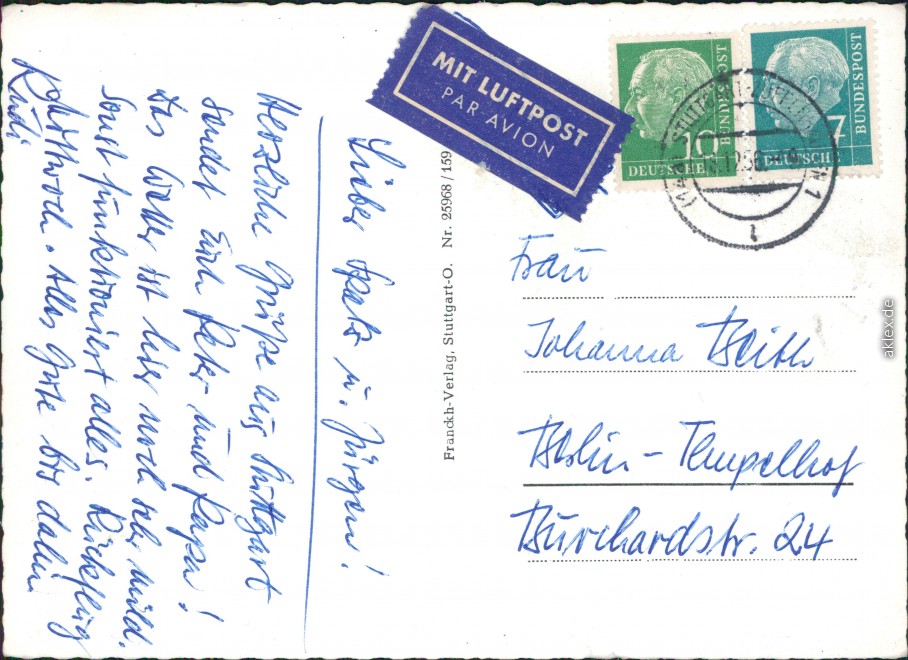 MIT LUFTPOST
PAR AVION
10
DEUTSCHE
BUNDESPOST
7
DEUTSCHE
BUNDESPOST
Lieber Spatz u. Jürgen!
Herzliche Grüsse aus Stuttgart
sendet Euch Peter und Papa!
Das Wetter ist hier noch sehr mild.
Sonst funktioniert alles. Rückflug
Mittwoch. Alles Gute bis dahin
Rudi
Franckh-Verlag, Stuttgart-O. Nr. 25968 / 159
Frau
Johanna
Berlin - Tempelhof
Burchardstr. 24
aklex.de